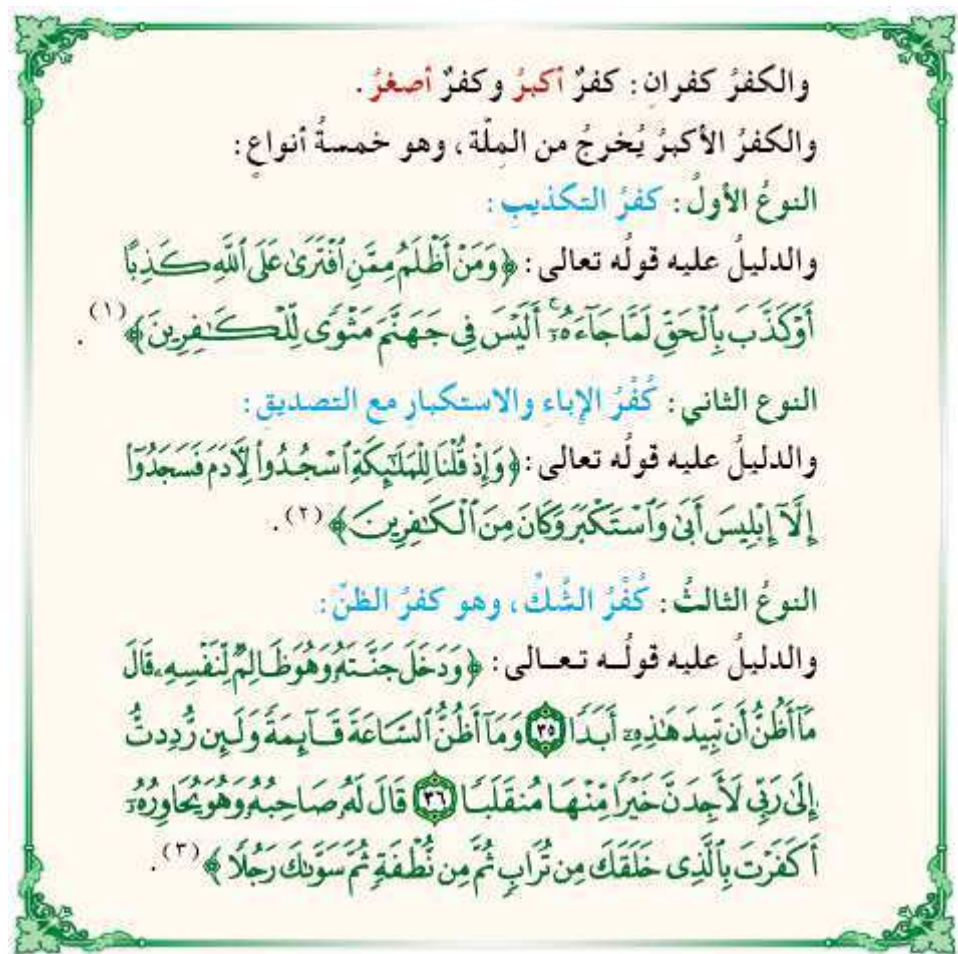 والكفرُ كفرانِ: كفرٌ أكبرُ وكفرٌ أصغرُ.
والكفرُ الأكبرُ يُخرجُ من المِلّة، وهو خمسةُ أنواعٍ:
النوعُ الأولُ: كفرُ التكذيبِ:
والدليلُ عليه قولُه تعالى: ﴿وَمَنۡ أَظۡلَمُ مِمَّنِ ٱفۡتَرَىٰ عَلَى ٱللَّهِ كَذِبًا
أَوۡ كَذَّبَ بِٱلۡحَقِّ لَمَّا جَآءَهُۥٓۚ أَلَيۡسَ فِي جَهَنَّمَ مَثۡوٗى لِّلۡكَٰفِرِينَ﴾(١).
النوع الثاني: كُفْرُ الإباءِ والاستكبارِ مع التصديقِ:
والدليلُ عليه قولُه تعالى: ﴿وَإِذۡ قُلۡنَا لِلۡمَلَٰٓئِكَةِ ٱسۡجُدُواْ لِأٓدَمَ فَسَجَدُوٓاْ
إِلَّآ إِبۡلِيسَ أَبَىٰ وَٱسۡتَكۡبَرَ وَكَانَ مِنَ ٱلۡكَٰفِرِينَ﴾(٢).
النوعُ الثالثُ: كُفْرُ الشَّكِّ، وهو كفرُ الظنّ:
والدليلُ عليه قولُـه تعـالى: ﴿وَدَخَلَ جَنَّتَهُۥ وَهُوَ ظَالِمٞ لِّنَفۡسِهِۦ قَالَ
مَآ أَظُنُّ أَن تَبِيدَ هَٰذِهِۦٓ أَبَدٗا ٣٥ وَمَآ أَظُنُّ ٱلسَّاعَةَ قَآئِمَةٗ وَلَئِن رُّدِدتُّ
إِلَىٰ رَبِّي لَأَجِدَنَّ خَيۡرٗا مِّنۡهَا مُنقَلَبٗا ٣٦ قَالَ لَهُۥ صَاحِبُهُۥ وَهُوَ يُحَاوِرُهُۥٓ
أَكَفَرۡتَ بِٱلَّذِي خَلَقَكَ مِن تُرَابٖ ثُمَّ مِن نُّطۡفَةٖ ثُمَّ سَوَّىٰكَ رَجُلٗا﴾(٣).